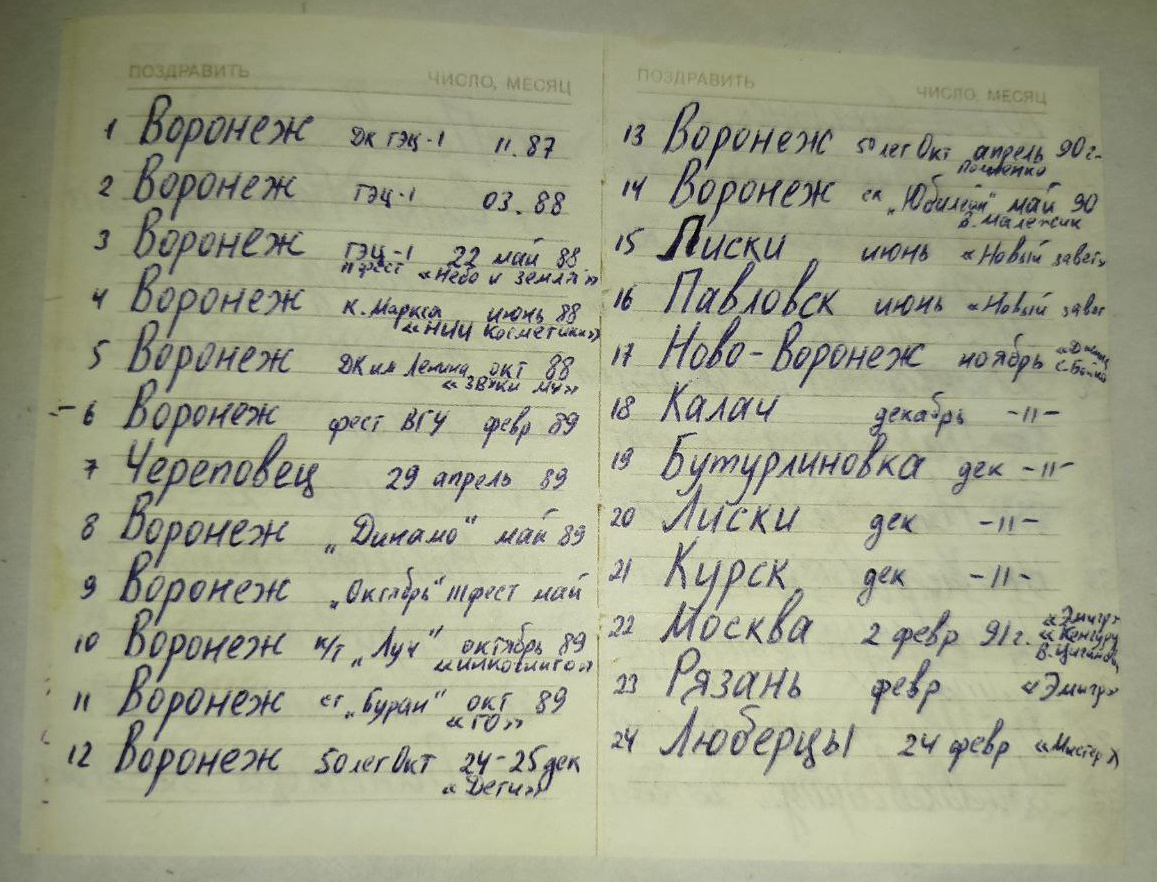 ПОЗДРАВИТЬ ЧИСЛО, МЕСЯЦ
1 Воронеж ДК ТЭЦ-1 11.87
2 Воронеж ТЭЦ-1 03.88
3 Воронеж ТЭЦ-1 22 май 88
фест «Небо и земля»
4 Воронеж К. Маркса июнь 88
«НИИ Косметики»
5 Воронеж ДК им Ленина окт 88
«Звуки Му»
6 Воронеж фест ВГУ февр 89
7 Череповец 29 апрель 89
8 Воронеж „Динамо" май 89
9 Воронеж „Октябрь" III фест май
10 Воронеж к/т „Луч" октябрь 89
11 Воронеж ст „Буран" окт 89
«ГО»
12 Воронеж 50 лет Окт 24-25 дек
«Дети»
ПОЗДРАВИТЬ ЧИСЛО, МЕСЯЦ
13 Воронеж 50 лет Окт апрель 90г.
14 Воронеж ск „Юбилейн" май 90
В. Малежик
15 Лиски июнь «Новый завет»
16 Павловск июнь «Новый завет
17 Ново-Воронеж ноябрь
18 Калач декабрь -11-
19 Бутурлиновка дек -11-
20 Лиски дек -11-
21 Курск дек -11-
22 Москва 2 февр 91г. «Эмигр»
«Кенгуру
23 Рязань февр «Эмигр»
24 Люберцы 24 февр «Мистер Х